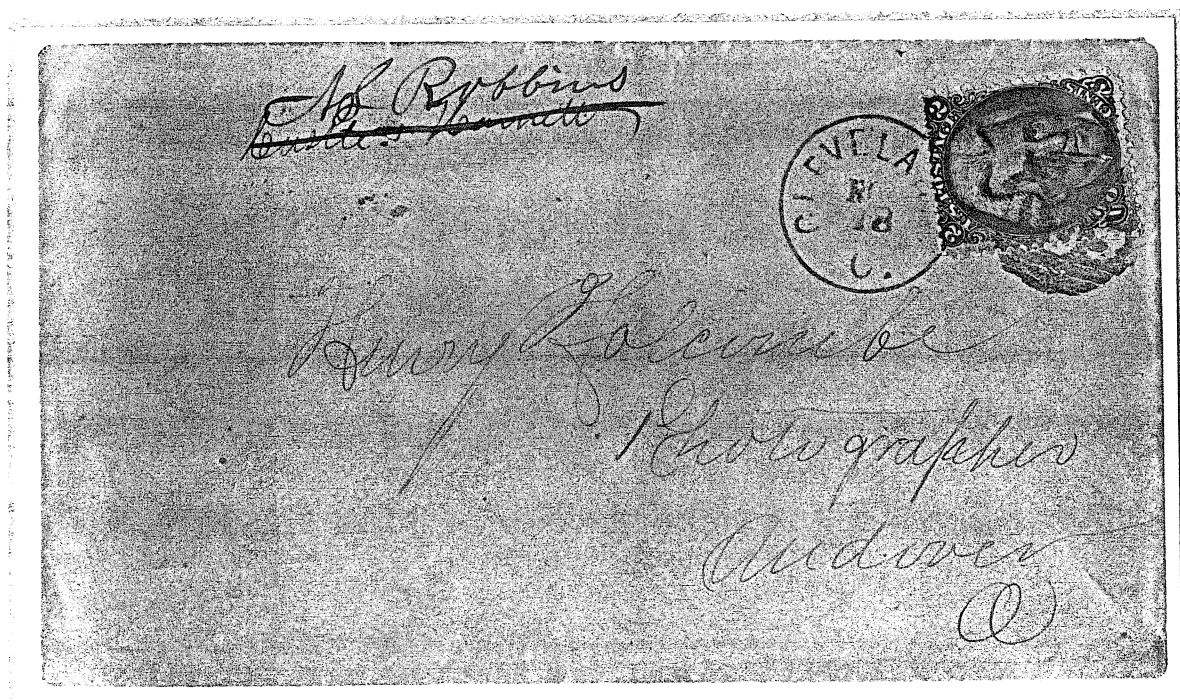 N L Robbins
CLEVELA
18
O.
Henry Holcombe
Photographer
Andover
O